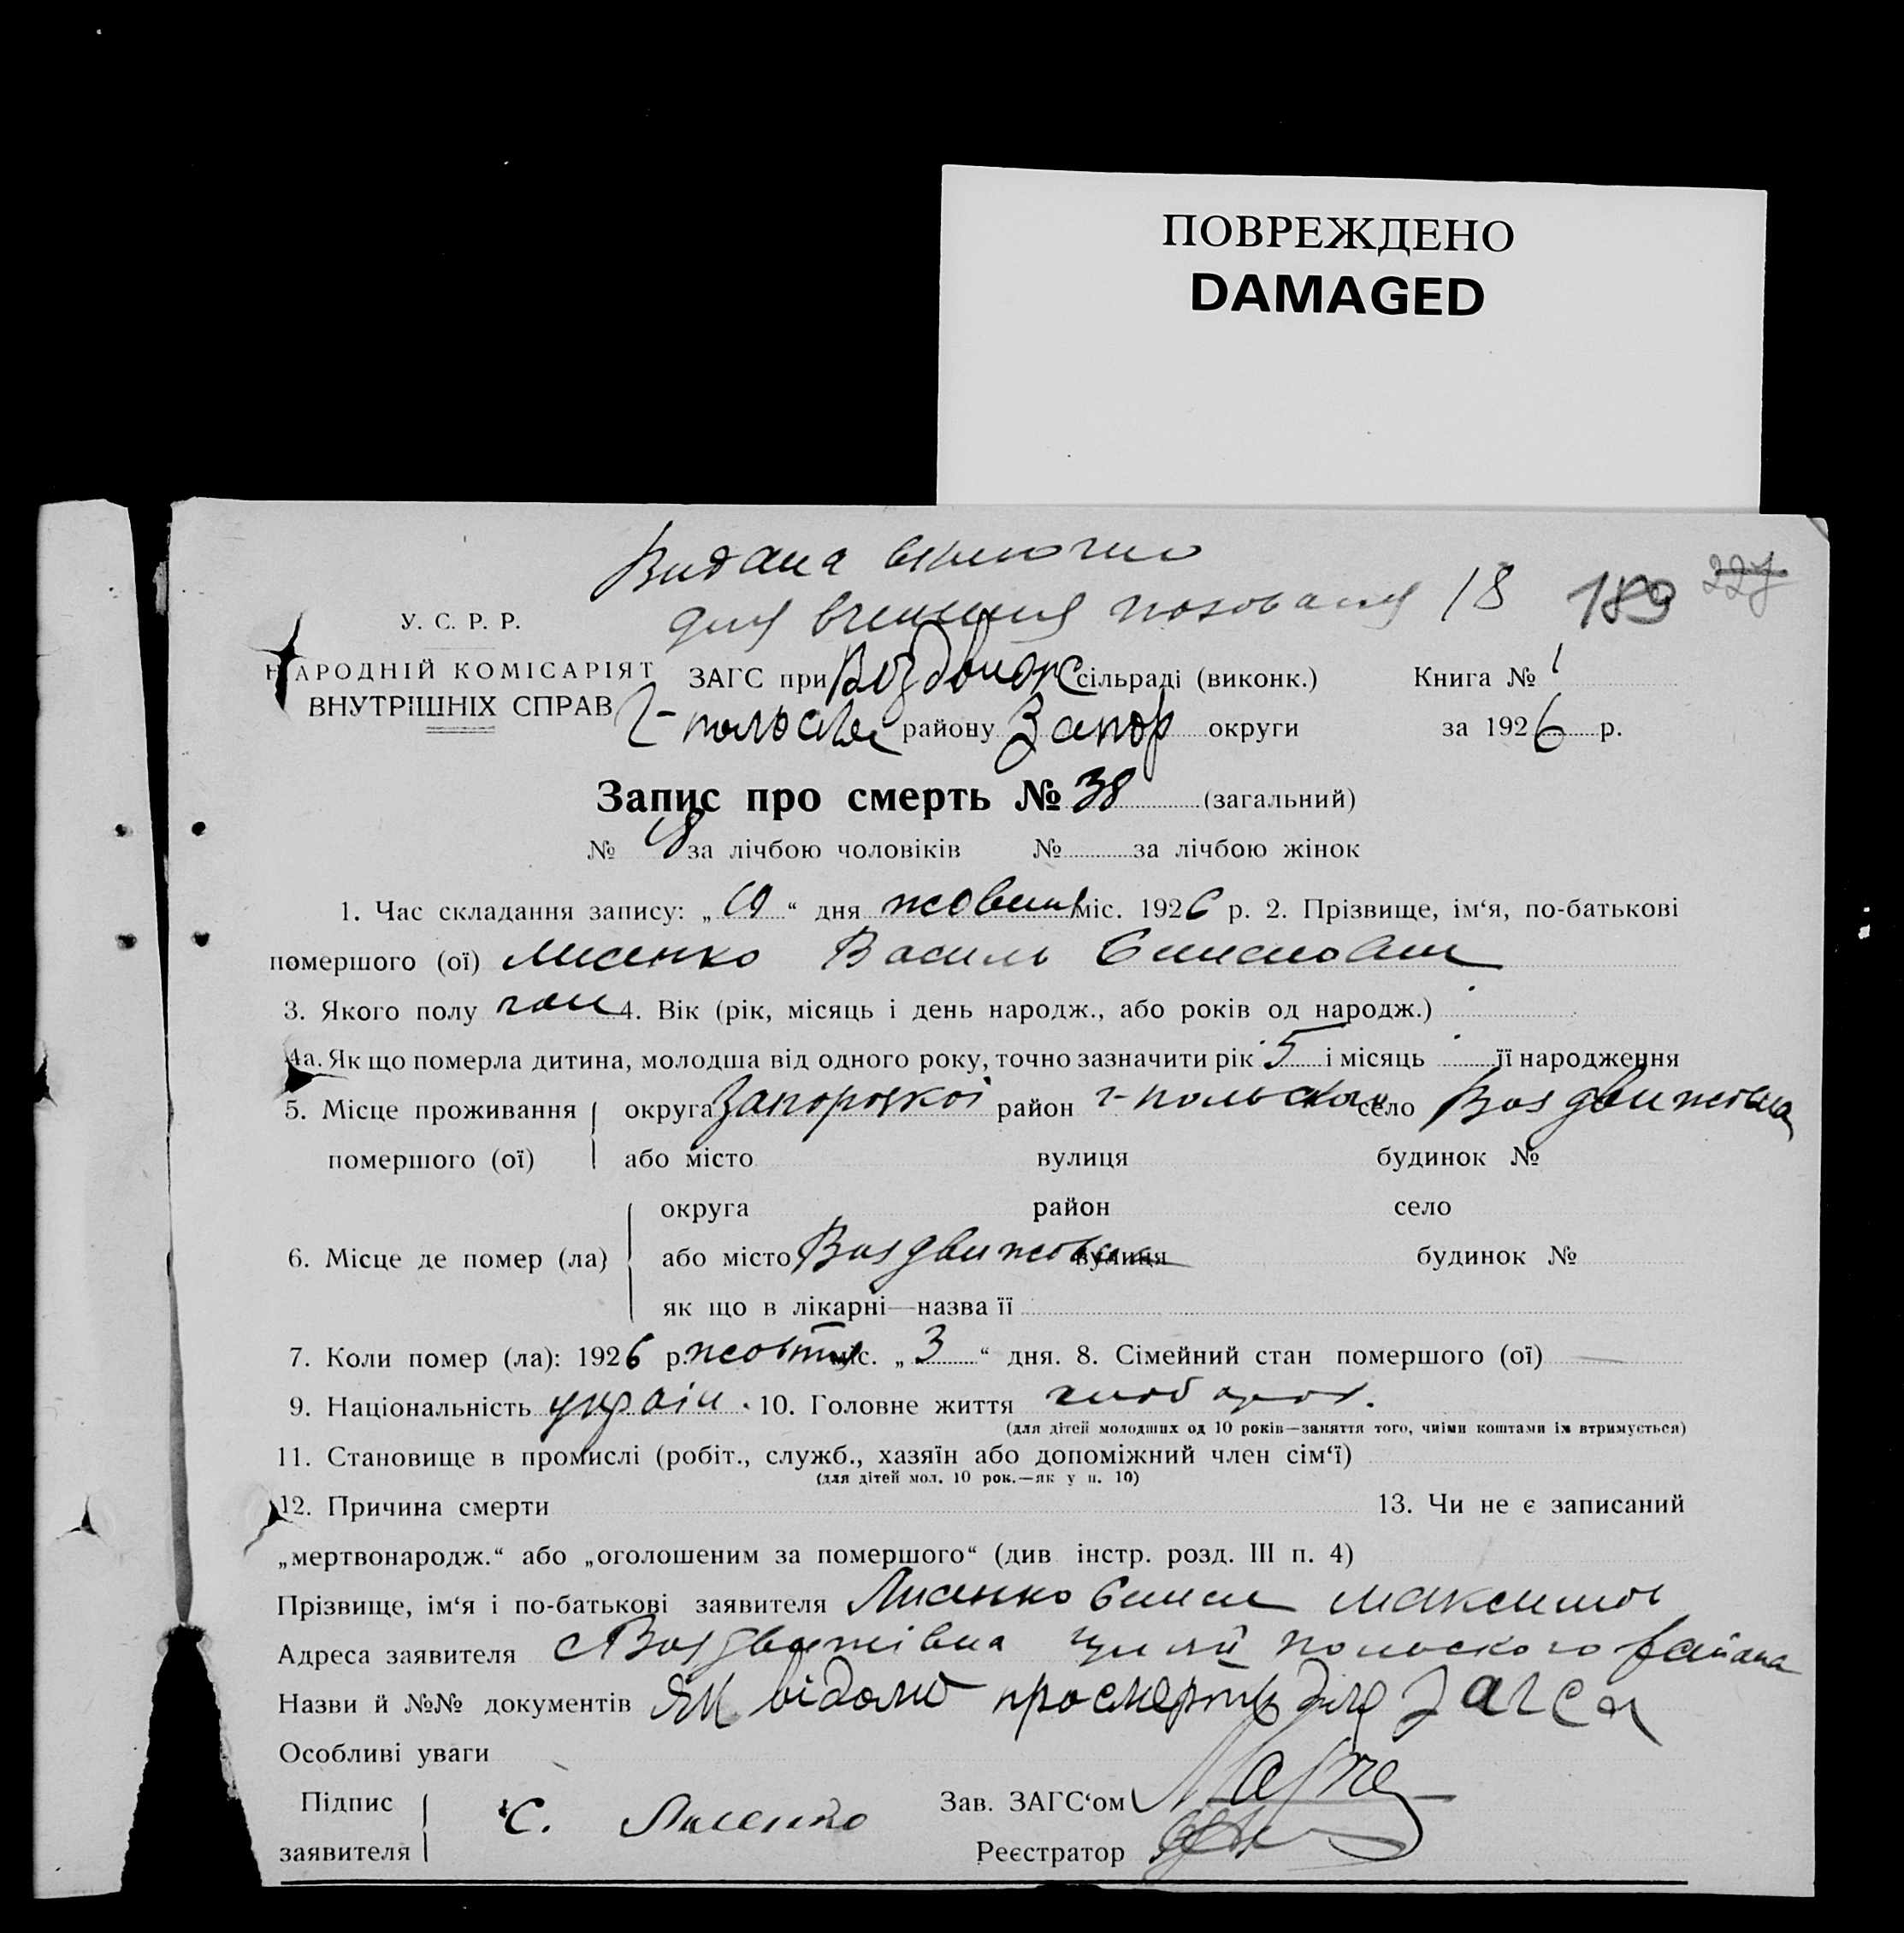 ПОВРЕЖДЕНО
DAMAGED
Видана
для вчинення поховання 18 189 227
У. С. Р. Р.
НАРОДНІЙ КОМІСАРІЯТ
ВНУТРІШНІХ СПРАВ
ЗАГС при Воздвиж сільраді (виконк.) Книга № 1
г-польськ району Запор округи за 1926 р.
Запис про смерть № 38 (загальний)
№ за лічбою чоловіків № за лічбою жінок
1. Час складання запису: „ “ дня жовтн міс. 1926 р. 2. Прізвище, ім‘я, по-батькові
помершого (ої) Лисенко Василь
3. Якого полу чол 4. Вік (рік, місяць і день народж., або років од народж.)
4а. Як що померла дитина, молодша від одного року, точно зазначити рік 5 і місяць її народження
5. Місце проживання округа Запорозкої район г-польськ село Воздвижовка
помершого (ої) або місто вулиця будинок №
округа район село
6. Місце де помер (ла) або місто Воздвижовка вулиця будинок №
як що в лікарні—назва її
7. Коли помер (ла): 1926 р. жовтня міс. „ 3 “ дня. 8. Сімейний стан помершого (ої)
9. Національність україн. 10. Головне життя хлібороб.
(для дітей молодших од 10 років—заняття того, чиїми коштами їх втримується)
11. Становище в промислі (робіт., служб., хазяїн або допоміжний член сім‘ї)
(для дітей мол. 10 рок.—як у п. 10)
12. Причина смерти 13. Чи не є записаний
„мертвонародж.“ або „оголошеним за помершого“ (див інстр. розд. III п. 4)
Прізвище, ім‘я і по-батькові заявителя Лисенко Максимов
Адреса заявителя с Воздвижівка Гуляй польского района
Назви й №№ документів відомо про смерть для Загса
Особливі уваги
Підпис
заявителя Є. Лисенко
Зав. ЗАГС‘ом
Реєстратор